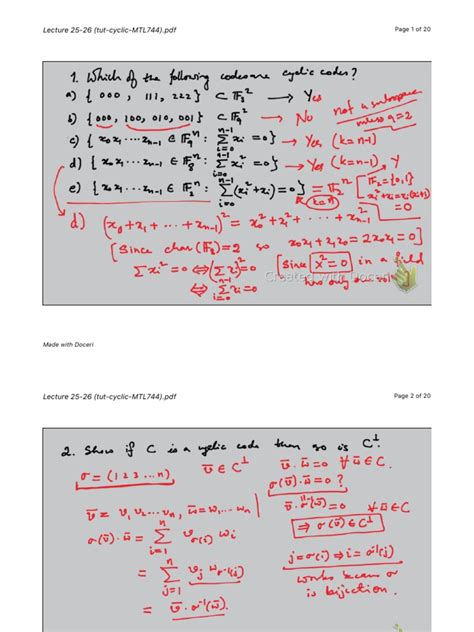 Lecture 25-26 (tut-cyclic-MTL744).pdf
Page 1 of 20
1. Which of the following codes are cyclic codes?
a) { 000, 111, 222 } ⊂ F₃² → Yes
b) { 000, 100, 010, 001 } ⊂ → No
not a subspace
unless q=2
c) { x₀x₁ ... xₙ₋₁ ∈ : Σ xᵢ = 0 } → Yes (k=n-1)
d) { x₀x₁ ... xₙ₋₁ ∈ F₈ⁿ : Σ xᵢ² = 0 } → Yes (k=n-1)
e) { x₀x₁ ... xₙ₋₁ ∈ F₂ⁿ : Σ (xᵢ² + xᵢ) = 0 } = F₂ⁿ
k=n
F₂ = {0,1}
= 0
d) (x₀ + x₁ + ... + xₙ₋₁)² = x₀² + x₁² + ... + xₙ₋₁²
[Since char(F₈) = 2 so x₀x₁ + x₁x₀ = 2x₀x₁ = 0]
Σ xᵢ² = 0 ⇔ (Σ xᵢ)² = 0
[since x² = 0 in a field
⇔ Σ xᵢ = 0
has only one
Created with Doceri
Made with Doceri
Lecture 25-26 (tut-cyclic-MTL744).pdf
Page 2 of 20
2. Show if C is a cyclic code then so is C⊥.
σ = (1 2 3 ... n)
v̄ ∈ C⊥
v̄ · w̄ = 0 ∀ w̄ ∈ C.
σ(v̄) · w̄ = 0 ?
v̄ = v₁ v₂ ... vₙ, w̄ = w₁ ... wₙ
v̄ · σ⁻¹(w̄) = 0 ∀ w̄ ∈ C
σ(v̄) · w̄ = Σ v_σ(i) wᵢ
⇒ σ(v̄) ∈ C⊥
= Σ vⱼ w_σ⁻¹(j)
j = σ(i) ⇒ i = σ⁻¹(j)
works because σ
is bijection.
= v̄ · σ⁻¹(w̄).